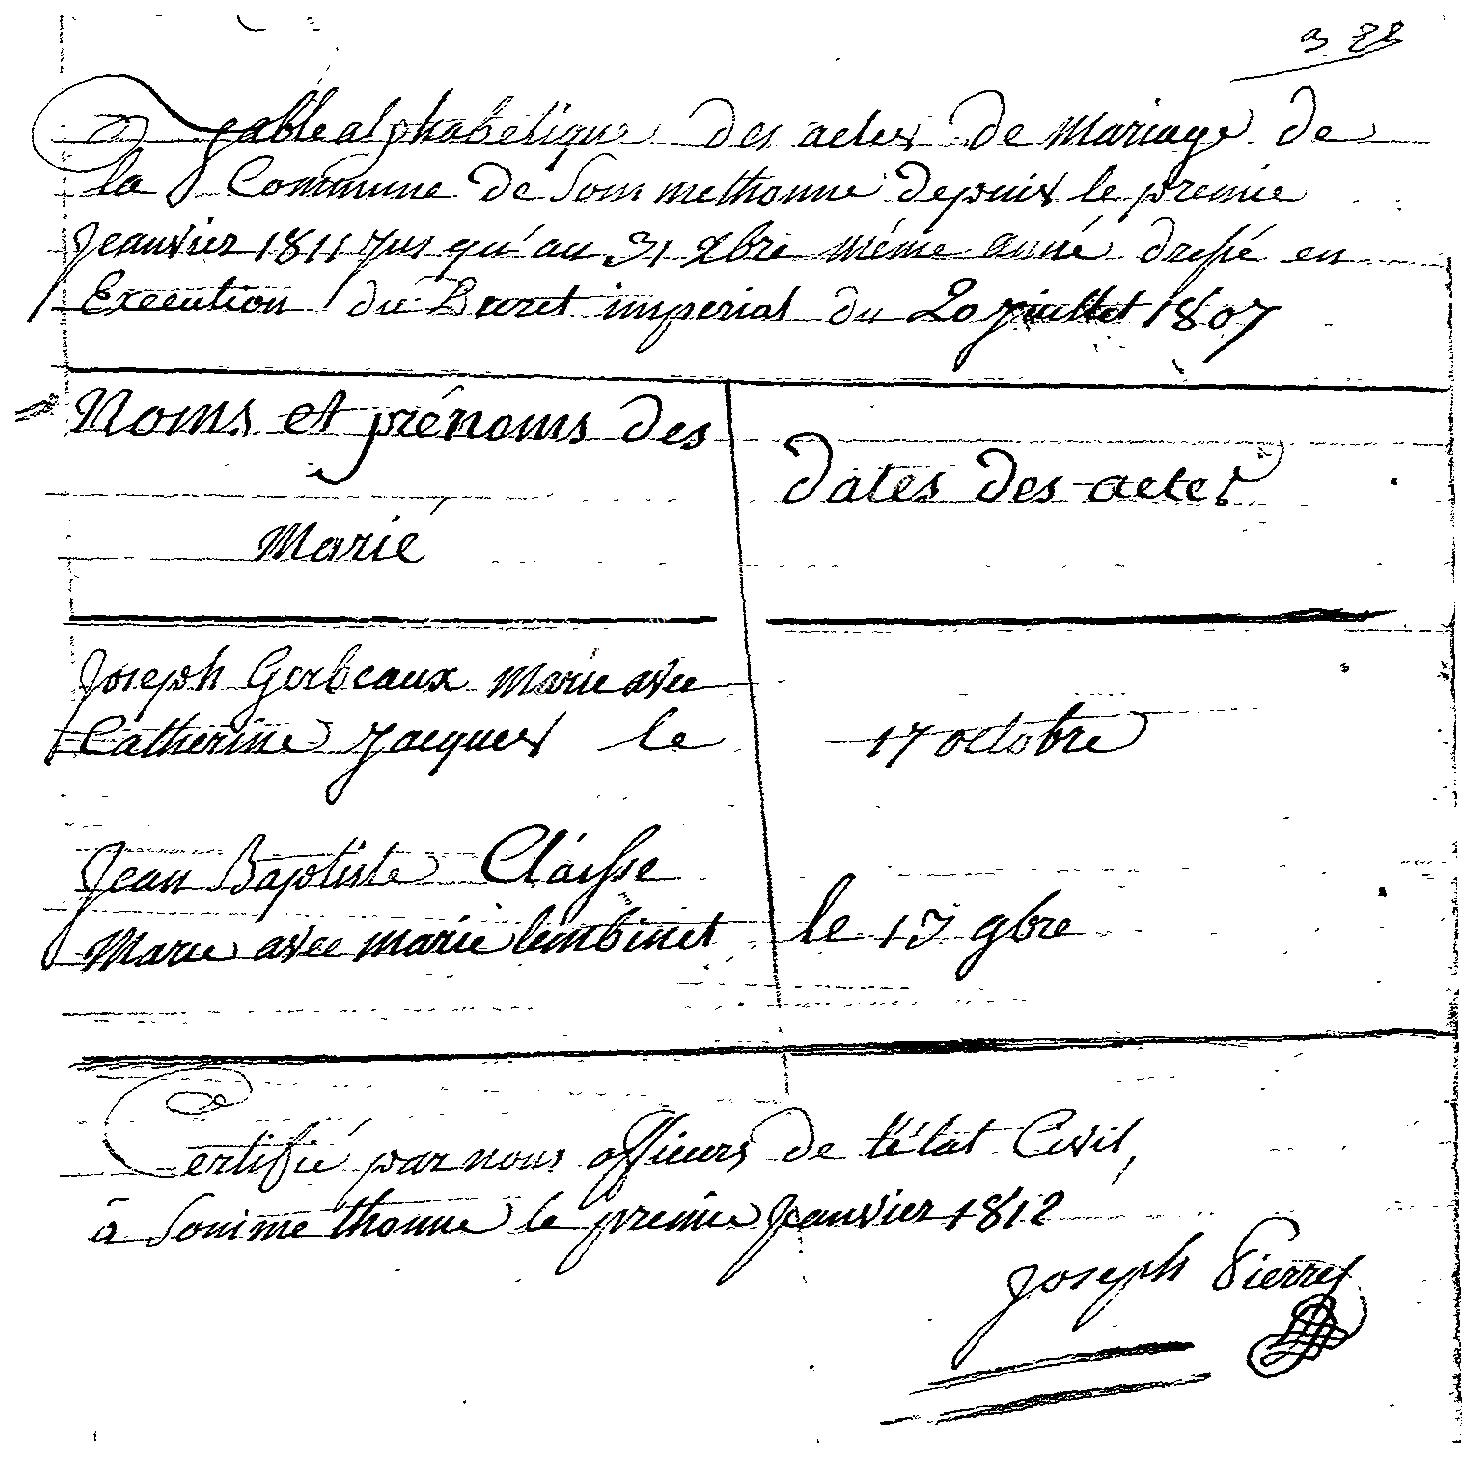 3 88
Table alphabetique des actes de Mariage de
la Commune de Sommethonne depuis le premie
Jeanvier 1811 jusqu'au 31 Xbre même anné dressé en
Execution du Decret imperial du 20 juillet 1807
Noms et prénoms des
Marié
dates des actes
Joseph Gerbeaux Marie avec
Catherine Jacques le 17 octobre
Jean Baptiste Claisse
Marie avec marie lembinet le 13 9bre
Certifié par nous officiers de l'état Civil,
à Sommethonne le premie Jeanvier 1812
Joseph Pierret